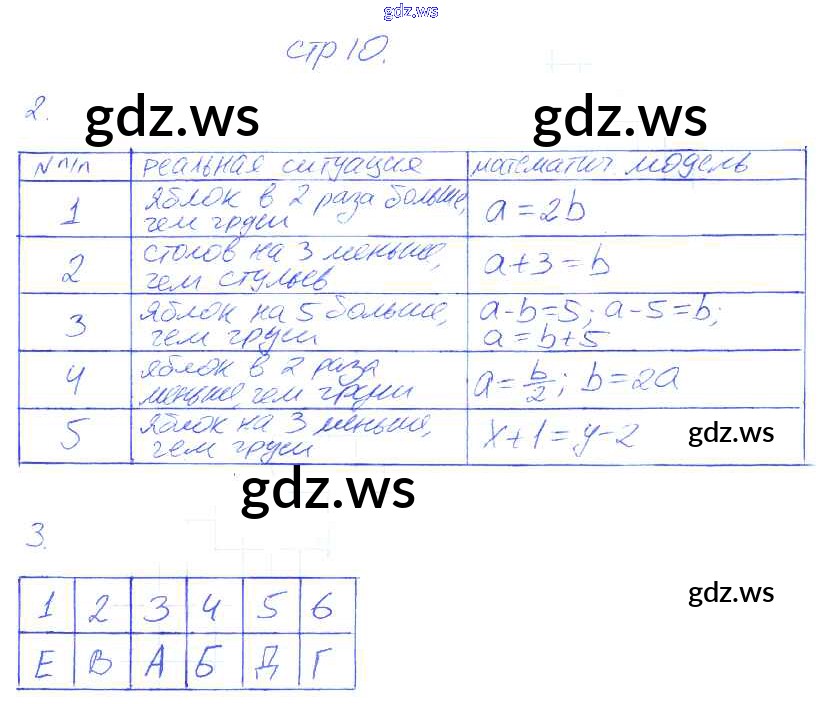 gdz.ws
стр 10.
2.
gdz.ws gdz.ws
N п/п реальная ситуация математич. модель
1 яблок в 2 раза больше, чем груш a=2b
2 столов на 3 меньше, чем стульев a+3=b
3 яблок на 5 больше, чем груш a-b=5; a-5=b; a=b+5
4 яблок в 2 раза меньше, чем груш a=b/2; b=2a
5 яблок на 3 меньше, чем груш x+1=y-2
gdz.ws
gdz.ws
3.
1 2 3 4 5 6
gdz.ws
Е В А Б Д Г